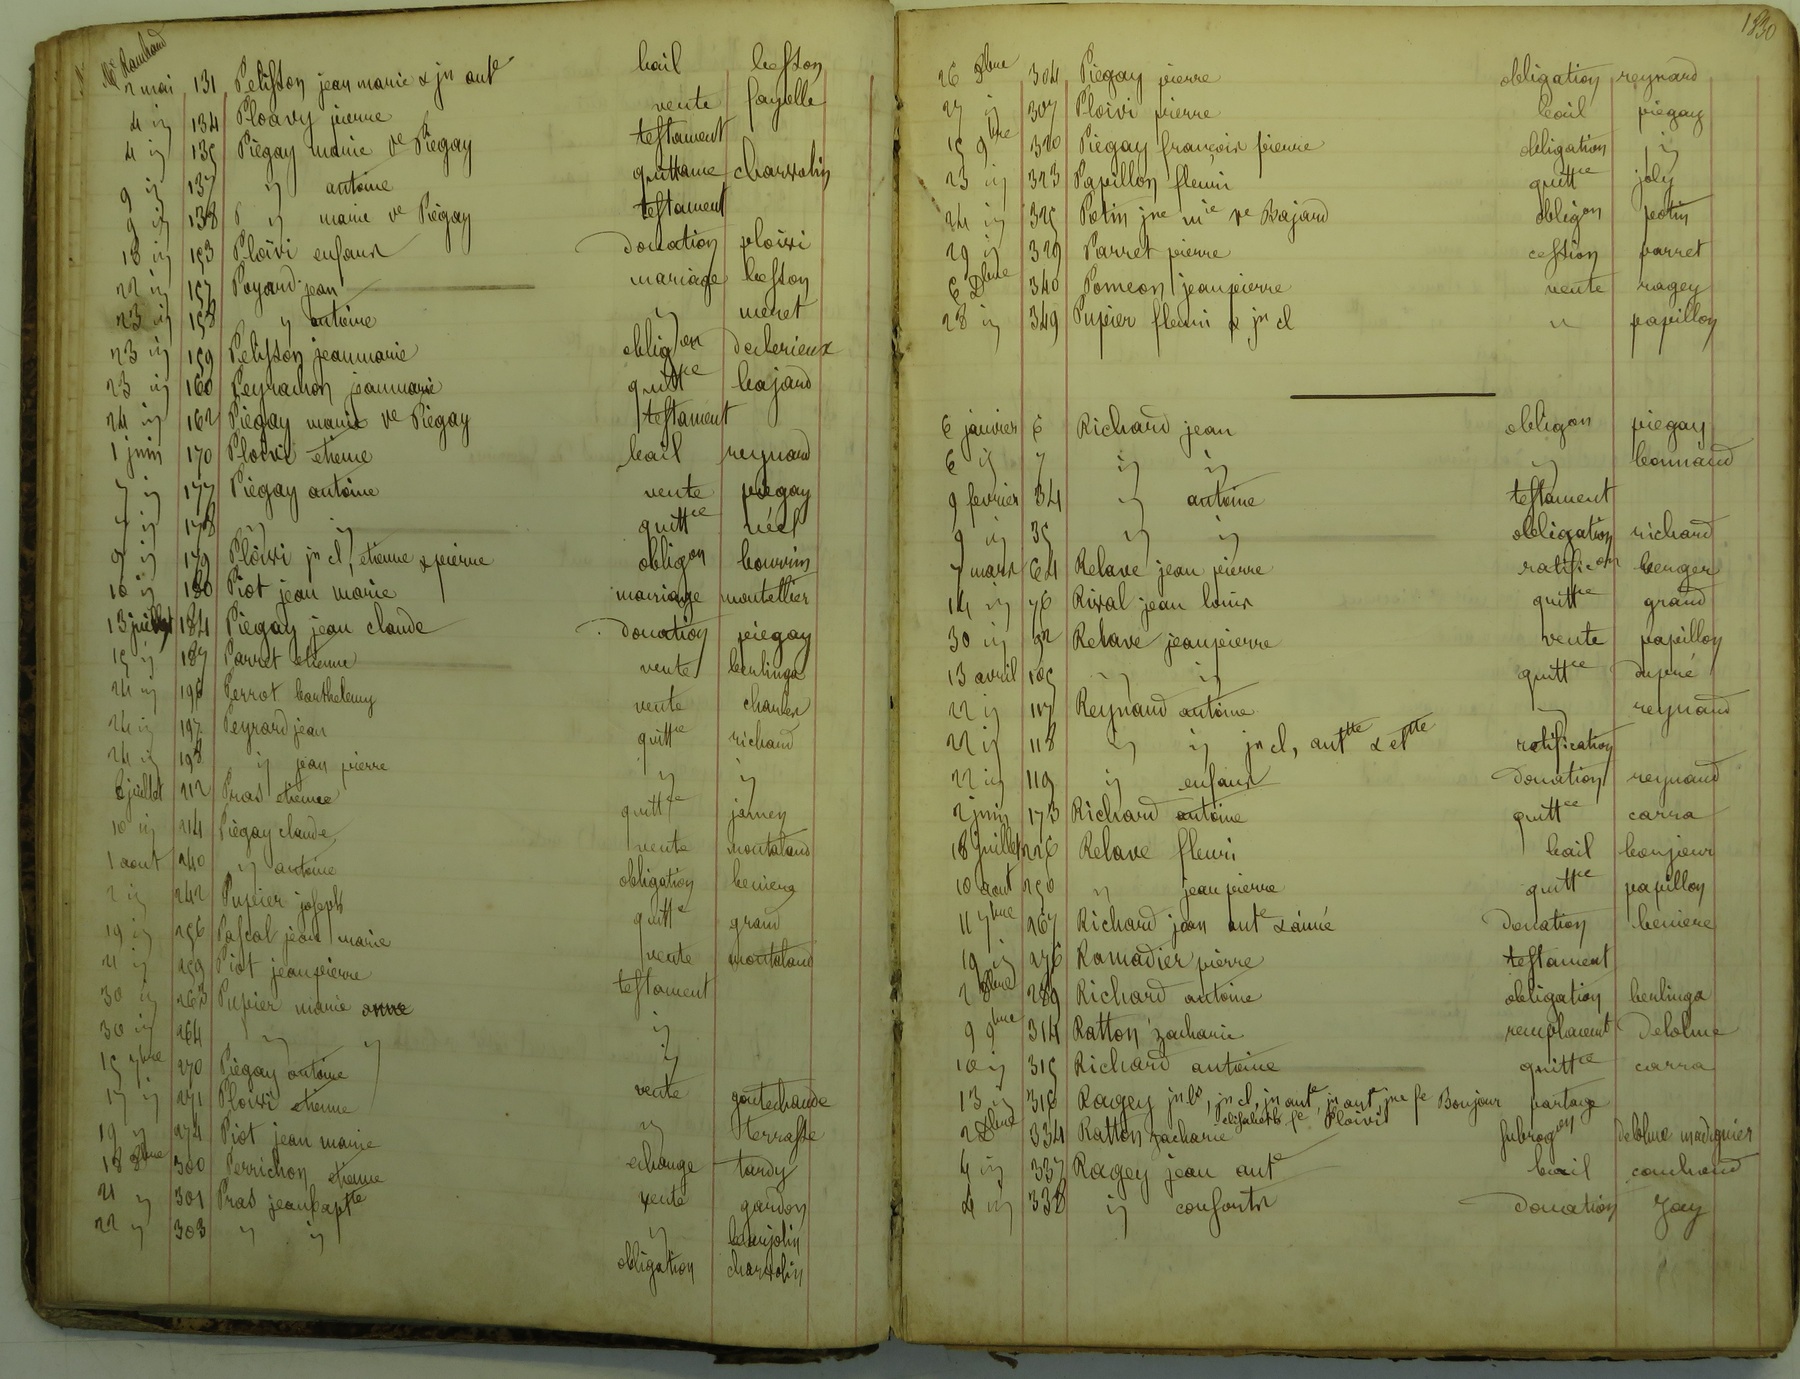 Me Rambaud
2 mai 131 Pelisson jean marie & jn ante bail besson
4 id 134 Ploavy pierre vente fayelle
4 id 135 Piégay marie ve Piégay testament
9 id 137 id antoine quittance charvolin
9 id 138 id marie ve Piégay testament
18 id 153 Ploivi enfans donation ploivi
22 id 157 Poyard jean mariage besson
23 id 158 id antoine id meret
23 id 159 Pelisson jeanmarie obligon
23 id 160 Peyrachon jeanmarie quittce bajard
24 id 162 Piégay marie ve Piégay testament
1 juin 170 Ploivi etienne bail reynard
7 id 177 Piégay antoine vente piegay
7 id 178 id id quittce réel
9 id 179 Ploivi jn cl, etienne & pierre obligon bouvrin
10 id 180 Piot jean marie mariage montellier
13 184 Piegay jean claude donation piegay
15 id 187 Parret etienne vente berlinga
24 id 196 Perrot barthelemy vente
24 id 197 Peyrard jean quittce richard
24 id 198 id jean pierre id id
6 juillet 212 Pras etienne quittce
10 id 214 Piégay claude vente montaland
1 aout 240 id antoine obligation
2 id 242 Pupier joseph quittce grand
19 id 256 Pascal jean marie vente montaland
21 id 259 Piot jeanpierre testament
30 id 263 Pupier marie anne id
30 id 264 id id id
15 7bre 270 Piégay antoine vente goutechaude
17 id 271 Ploivi etienne id terrasse
19 id 274 Piot jean marie echange tardy
18 8bre 300 Perrichon etienne vente gardon
21 id 301 Pras jeanbaptte id
22 id 303 id id obligation charvolin
1830
26 8bre 304 Piegay pierre obligation reynard
27 id 307 Ploivi pierre bail piegay
15 9bre 320 Piégay françois pierre obligation id
23 id 323 Papillon fleuri quittce joly
24 id 325 Potin jne mie ve Bajard obligon potin
29 id 329 Parret pierre cession parret
6 Dbre 340 Pomeon jeanpierre vente ragey
28 id 349 Pupier fleuri & jn cl id papillon
6 janvier 6 Richard jean obligon piegay
6 id 7 id id id bonnand
9 fevrier 34 id antoine testament
9 id 35 id id obligation richard
7 mars 64 Relave jean pierre ratificon berger
14 id 76 Rival jean louis quittce grand
30 id 92 Relave jeanpierre vente papillon
13 avril 105 id id quittce dupré
22 id 117 Reynaud antoine id reynaud
22 id 118 id id jn cl, antte & ettte ratification
22 id 119 id enfans donation reynaud
2 juin 173 Richard antoine quittce carra
18 juillet 226 Relave fleuri bail bonjour
10 aout 250 id jeanpierre quittce papillon
11 7bre 267 Richard jean ante & aimé donation beniere
19 id 276 Ramadier pierre testament
2 8bre 289 Richard antoine obligation berlinga
9 9bre 314 Ratton zacharie remplacent delolme
10 id 315 Richard antoine quittce carra
13 id 316 Ragey jn bte, jn cl, jn ante, jn ant jne fe Bonjour partage
elizabeth fe Ploivi
2 Dbre 334 Ratton zacharie subrogon delolme
4 id 337 Ragey jean ante bail couhard
4 id 338 id consorts donation Jay